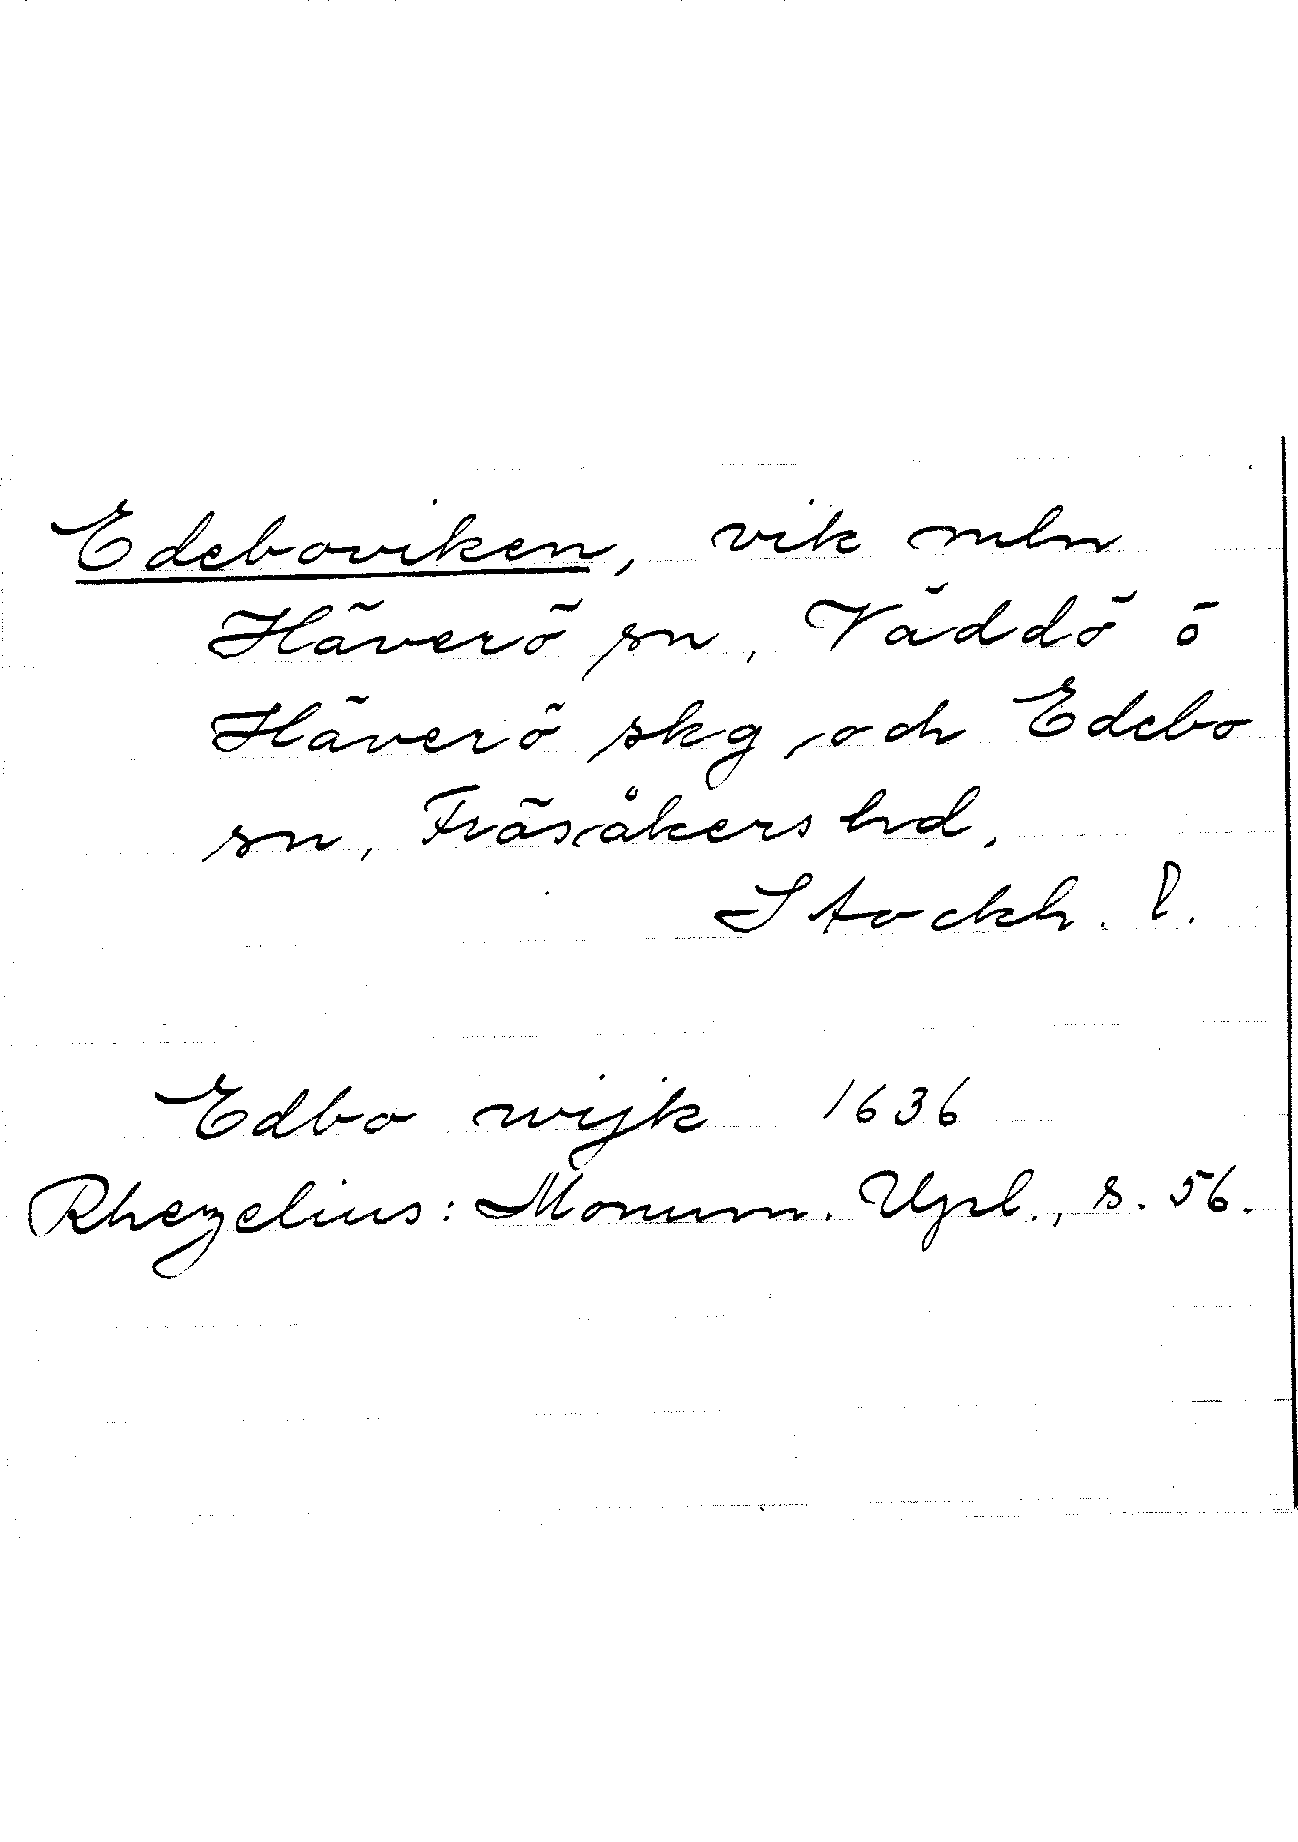 Edeboviken, vik mln
Häverö sn, Väddö o
Häverö skg och Edebo
sn, Frösåkers hd.
Stockh. l.
Edbo wijk 1636
Rhezelius: Monum. Upl., s. 56.